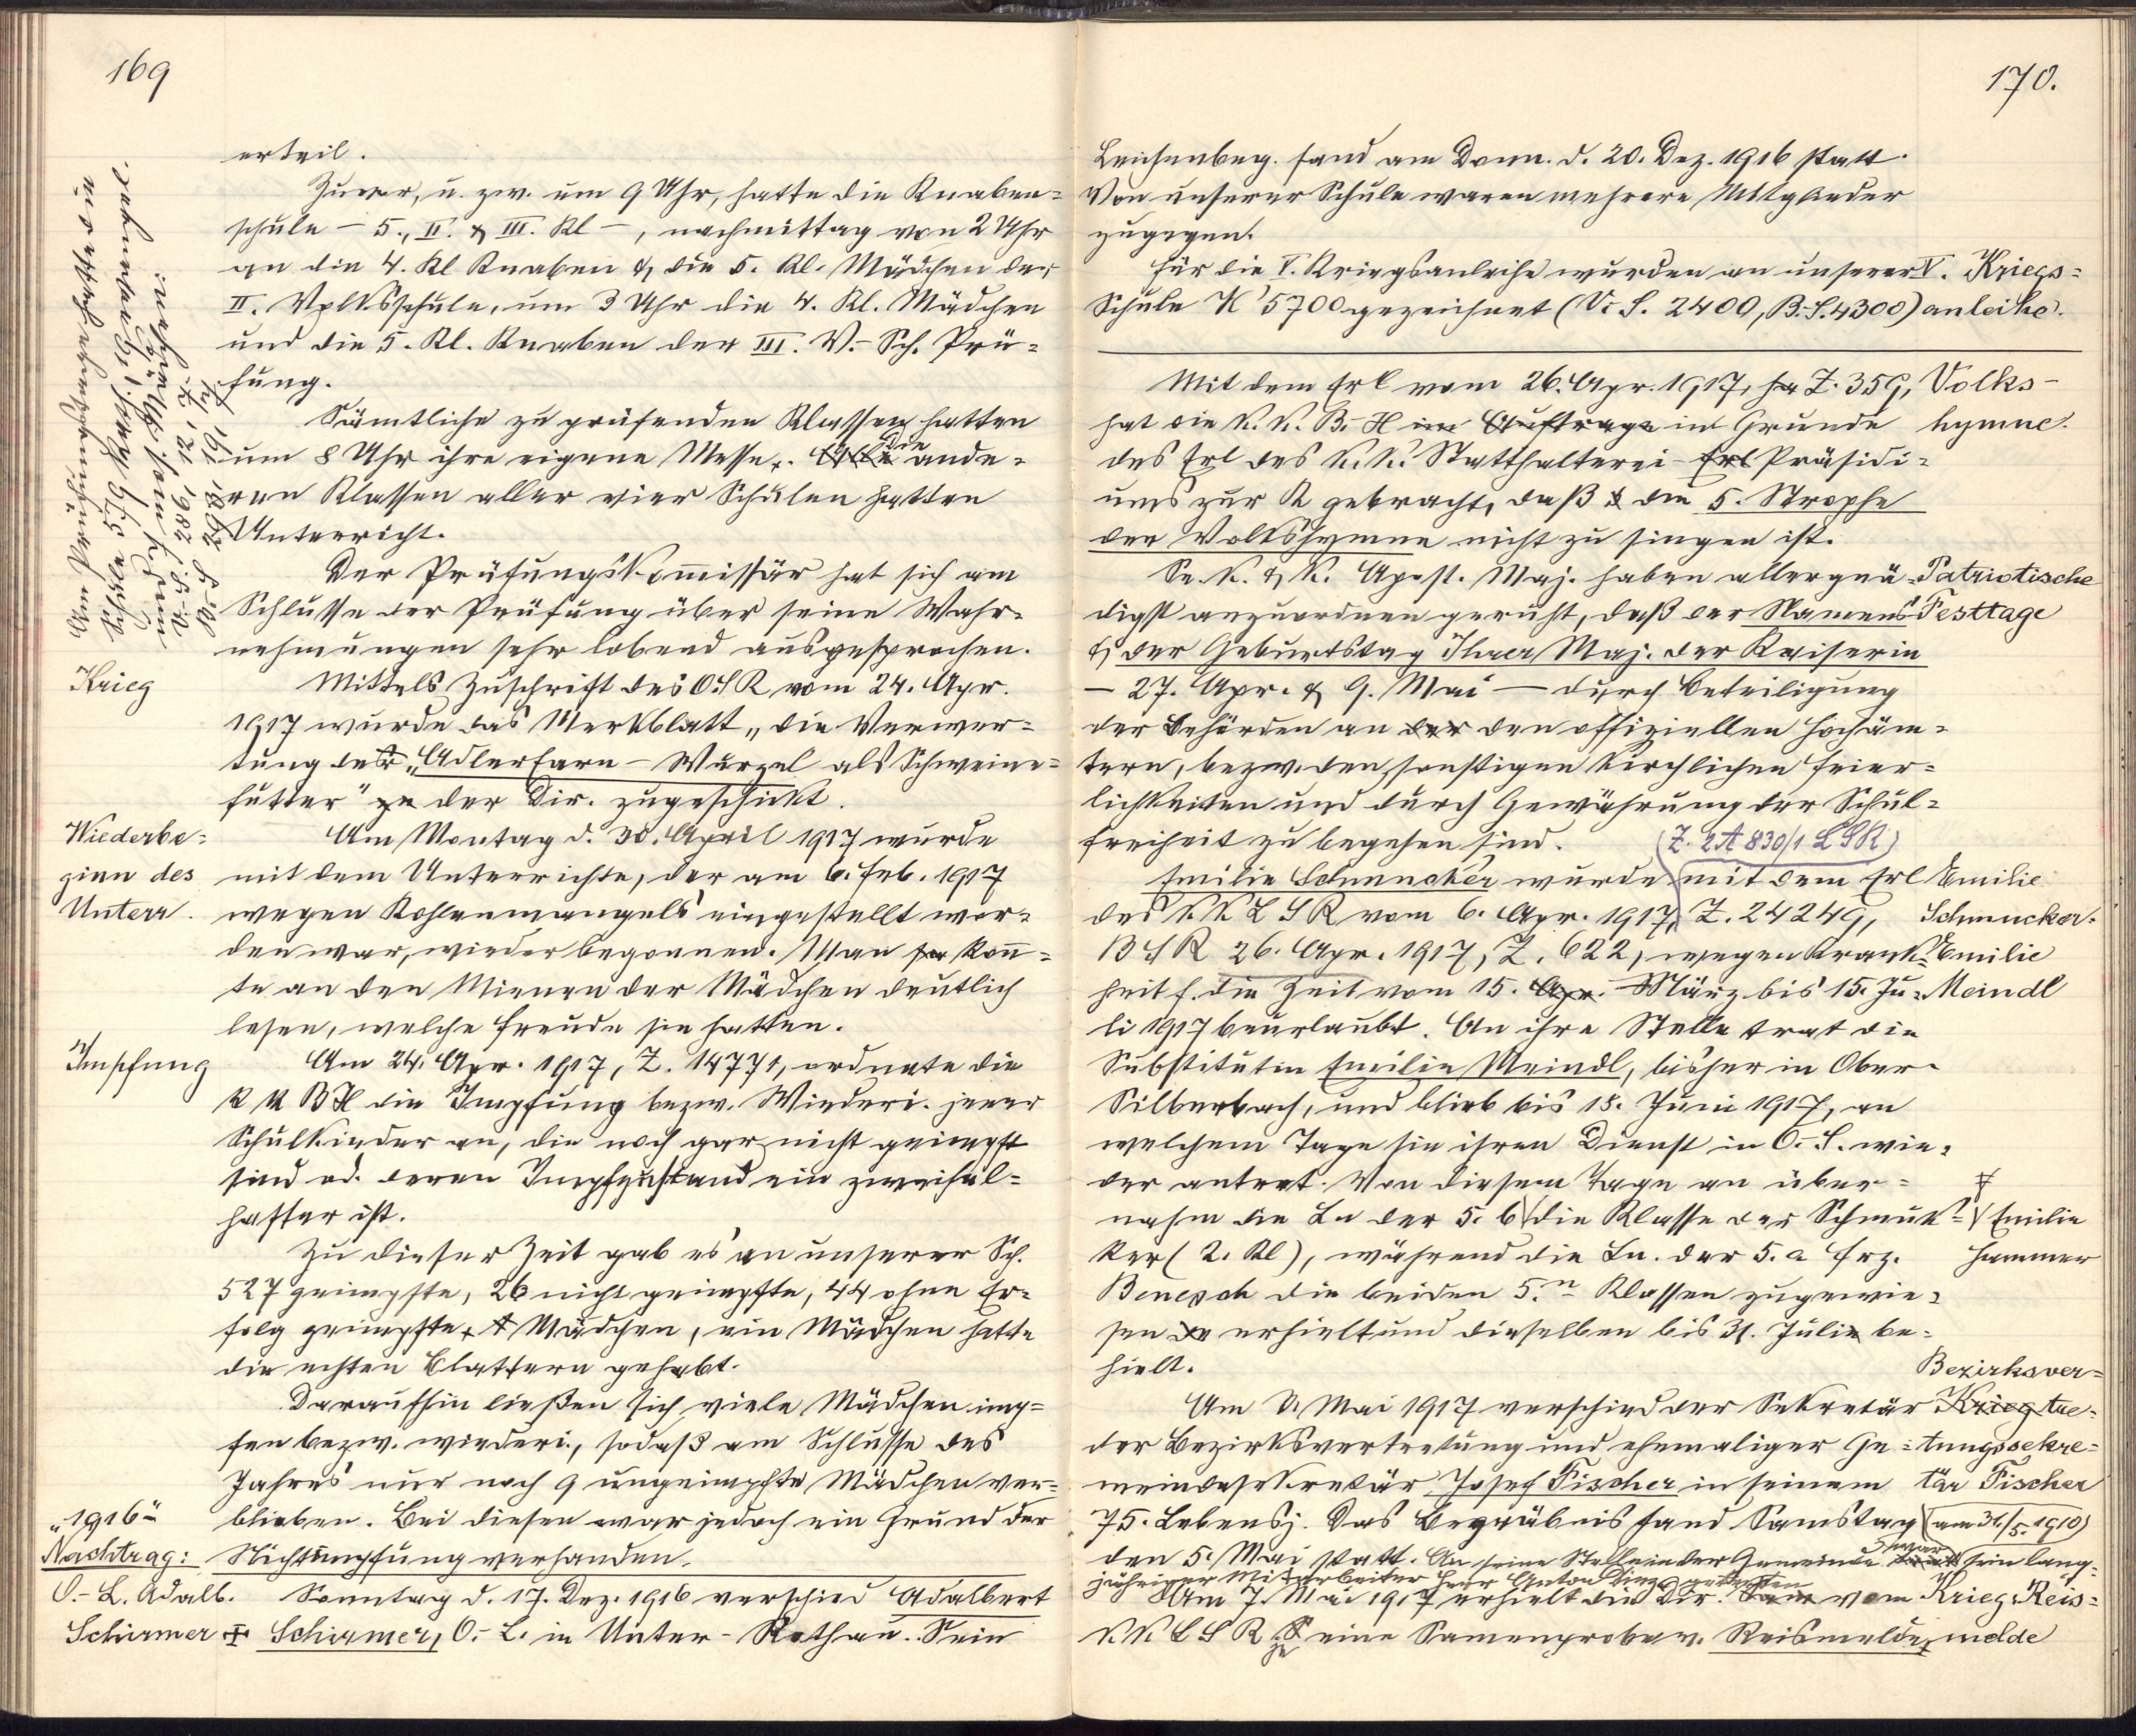 169
erteil.
Zuvor, u. zw. um 9 Uhr, hatte die Knaben=
schule – 5., II. & III. Kl –, nachmittag von 2 Uhr
an die 4. Kl Knaben & die 5. Kl. Mädchen der
II. Volksschule, um 3 Uhr die 4. Kl. Mädchen
und die 5. Kl. Knaben der III. V.-Sch. Prü=
fung.
Sämtliche zu prüfenden Klassen hatten
um 8 Uhr ihre eigene Messe. Alle die ande=
ren Klassen aller vier Schulen hatten
Unterricht.
Der Prüfungskom̄issär hat sich am
Schlusse der Prüfung über seine Wahr=
nehmungen sehr lobend ausgesprochen.
Krieg
Mittels Zuschrift des OSR vom 24. Apr.
1917 wurde das Merkblatt „die Verwer=
tung der „Adlerfarn-Wurzel als Schweine=
futter" zu der Dir. zugeschickt.
Wiederbe=
ginn des
Unterr.
Am Montag d. 30. April 1917 wurde
mit dem Unterrichte, der am 6. Feb. 1917
wegen Kohlenmangels eingestellt wor=
den war, wieder begonnen. Man kon̄=
te an den Mienen der Mädchen deutlich
lesen, welche Freude sie hatten.
Impfung
Am 24. Apr. 1917, Z. 14771, ordnete die
K K BH die Impfung bezw. Wiederi. jener
Schulkinder an, die noch gar nicht geimpft
sind od. deren Impfzustand ein zweifel=
hafter ist.
Zu dieser Zeit gab es an unserer Sch.
527 geimpfte, 26 nicht geimpfte, 44 ohne Er=
folg geimpfte Mädchen, ein Mädchen hatte
die echten Blattern gehabt.
Daraufhin ließen sich viele Mädchen imp=
fen bezw. wiederi., sodaß am Schlusse des
Jahres nur noch 9 ungeimpfte Mädchen ver=
blieben. Bei diesen war jedoch ein Grund der
Nichtimpfung vorhanden.
„1916"
Nachtrag:
O.-L. Adalb.
Schirmer ✝
Sonntag d. 17. Dez. 1916 verschied Adalbert
Schirmer, O.-L. in Unter-Rothau. Sein
170.
Leichenbeg. fand am Donn. d. 20. Dez. 1916 statt.
Von unserer Schule waren mehrere Mitglieder
zugegen.
Für die V. Kriegsanleihe wurden an unserer
Schule K 5700 gezeichnet (V. S. 2400, B.-S. 4300)
V. Kriegs=
anleihe.
Mit dem Erl vom 26. Apr. 1917, Z. 359,
hat die K. K. B. H im Auftrage in Grunde
des Erl des K. K. Statthalterei-Erl Präsidi=
ums zur K gebracht, daß die 5. Strophe
der Volkshymne nicht zu singen ist.
Volks-
hymne.
Se. K. & K. Apost. Maj. haben allergnä=
digst anzuordnen geruht, daß der Namens
& der Geburtstag Ihrer Maj. der Kaiserin
– 27. Apr. & 9. Mai – durch Beteiligung
der Behörden an der den offiziellen Hochäm=
tern, bezw. den sonstigen kirchlichen Feier=
lichkeiten und durch Gewährung der Schul=
freiheit zu begehen sind.
Patriotische
Festtage
(Z. 2A 830/1 LSR)
Emilie Schmucker wurde mit dem Erl
des K K L S R vom 6. Apr. 1917, Z. 24249,
B S R 26. Apr. 1917, Z. 622, wegen Krank=
heit f. die Zeit vom 15. Apr. März bis 15. Ju=
li 1917 beurlaubt. An ihre Stelle trat die
Substitutin Emilie Meindl, bisher in Ober-
Silberbach, und blieb bis 18. Juni 1917, an
welchem Tage sie ihren Dienst in O.-S. wie=
der antrat. Von diesem Tage an über=
nahm die Ln der 5. b die Klasse der Schmuk=
ker (2. Kl), während die Ln. der 5. a Frz.
Benesch die beiden 5.n Klassen zugewie=
sen erhielt und dieselben bis 31. Juli be=
hielt.
Emilie
Schmucker.
Emilie
Meindl
Emilie
Hammer
Am 2. Mai 1917 verschied der Sekretär
der Bezirksvertretung und ehemaliger Ge=
meindesekretär Josef Fischer in seinem
75. Lebensj. Das Begräbnis fand Samstag
den 5. Mai statt. An seine Stelle in der Gemeinde war (am 31./5. 1910) sein lang=
jähriger Mitarbeiter Herr Anton getreten
Bezirksver=
Krieg tre=
tungssekre=
tär Fischer
Am 7. Mai 1917 erhielt die Dir. vom
K K L S R eine Samenprobe v. Reismelde
Krieg. Reis=
melde